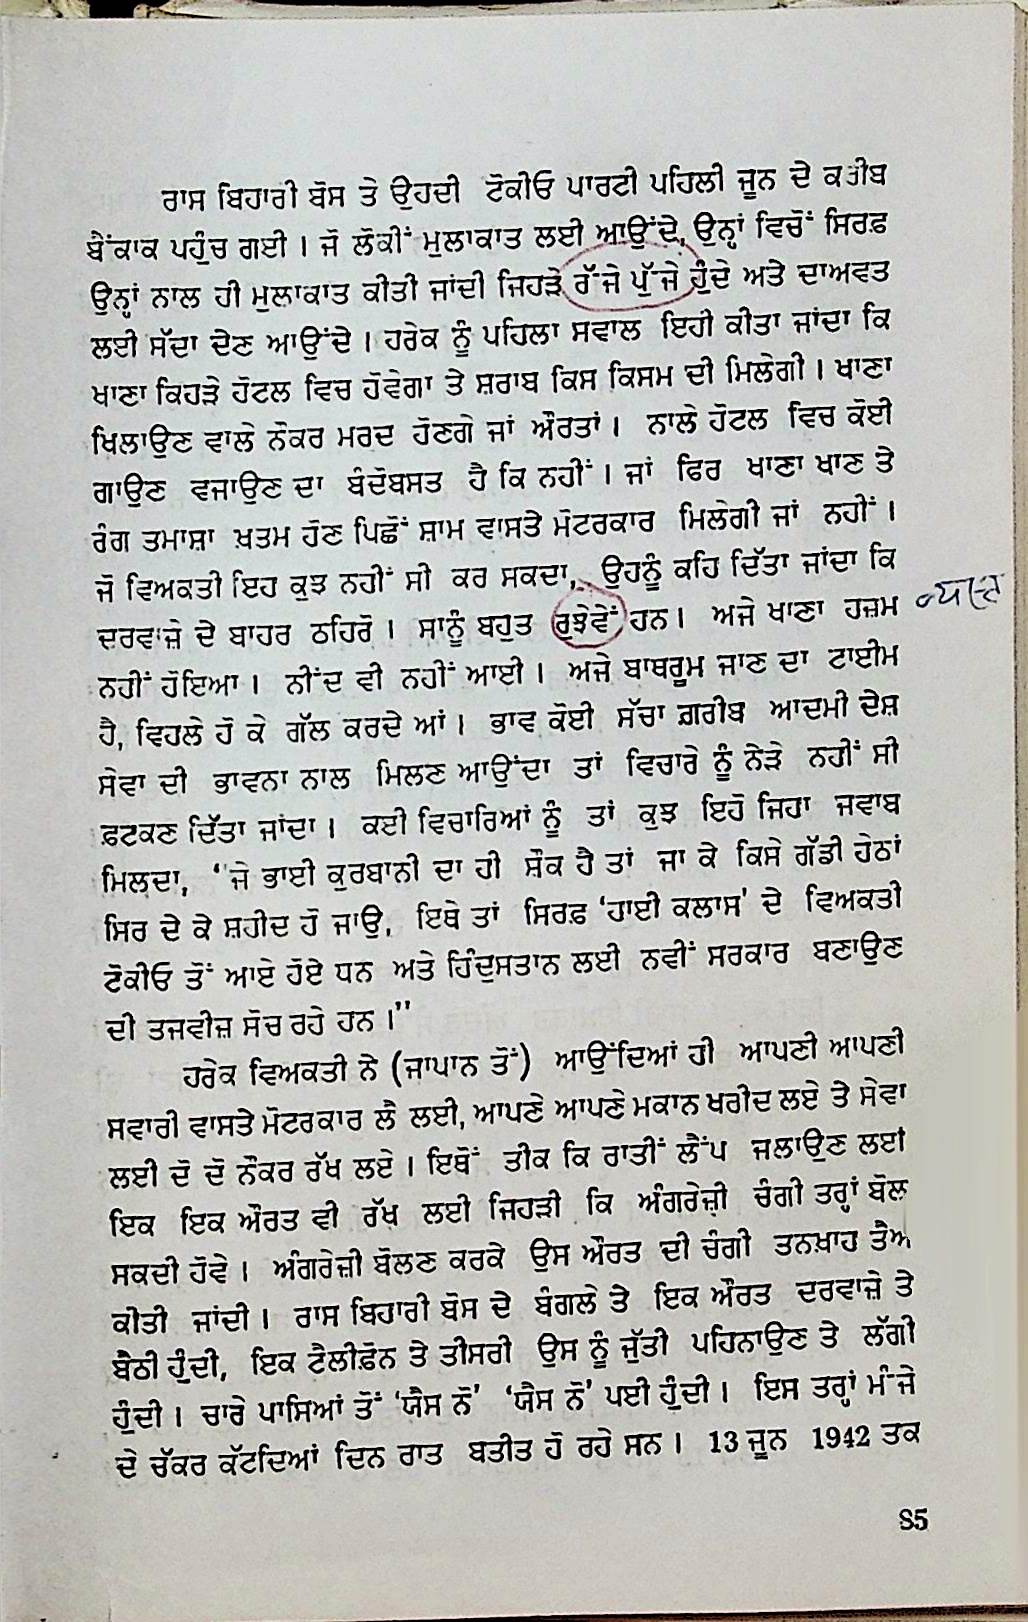 ਰਾਸ ਬਿਹਾਰੀ ਬੋਸ ਤੇ ਉਹਦੀ ਟੋਕੀਓ ਪਾਰਟੀ ਪਹਿਲੀ ਜੂਨ ਦੇ ਕਰੀਬ
ਬੈਂਕਾਕ ਪਹੁੰਚ ਗਈ । ਜੋ ਲੋਕੀਂ ਮੁਲਾਕਾਤ ਲਈ ਆਉਂਦੇ, ਉਨ੍ਹਾਂ ਵਿਚੋਂ ਸਿਰਫ਼
ਉਨ੍ਹਾਂ ਨਾਲ ਹੀ ਮੁਲਾਕਾਤ ਕੀਤੀ ਜਾਂਦੀ ਜਿਹੜੇ ਰੱਜੇ ਪੁੱਜੇ ਹੁੰਦੇ ਅਤੇ ਦਾਅਵਤ
ਲਈ ਸੱਦਾ ਦੇਣ ਆਉਂਦੇ । ਹਰੇਕ ਨੂੰ ਪਹਿਲਾ ਸਵਾਲ ਇਹੀ ਕੀਤਾ ਜਾਂਦਾ ਕਿ
ਖਾਣਾ ਕਿਹੜੇ ਹੋਟਲ ਵਿਚ ਹੋਵੇਗਾ ਤੇ ਸ਼ਰਾਬ ਕਿਸ ਕਿਸਮ ਦੀ ਮਿਲੇਗੀ । ਖਾਣਾ
ਖਿਲਾਉਣ ਵਾਲੇ ਨੌਕਰ ਮਰਦ ਹੋਣਗੇ ਜਾਂ ਔਰਤਾਂ । ਨਾਲੇ ਹੋਟਲ ਵਿਚ ਕੋਈ
ਗਾਉਣ ਵਜਾਉਣ ਦਾ ਬੰਦੋਬਸਤ ਹੈ ਕਿ ਨਹੀਂ । ਜਾਂ ਫਿਰ ਖਾਣਾ ਖਾਣ ਤੇ
ਰੰਗ ਤਮਾਸ਼ਾ ਖ਼ਤਮ ਹੋਣ ਪਿਛੋਂ ਸ਼ਾਮ ਵਾਸਤੇ ਮੋਟਰਕਾਰ ਮਿਲੇਗੀ ਜਾਂ ਨਹੀਂ ।
ਜੋ ਵਿਅਕਤੀ ਇਹ ਕੁਝ ਨਹੀਂ ਸੀ ਕਰ ਸਕਦਾ, ਉਹਨੂੰ ਕਹਿ ਦਿੱਤਾ ਜਾਂਦਾ ਕਿ
ਦਰਵਾਜ਼ੇ ਦੇ ਬਾਹਰ ਠਹਿਰੋ । ਸਾਨੂੰ ਬਹੁਤ ਰੁਝੇਵੇਂ ਹਨ । ਅਜੇ ਖਾਣਾ ਹਜ਼ਮ व्यस्त
ਨਹੀਂ ਹੋਇਆ । ਨੀਂਦ ਵੀ ਨਹੀਂ ਆਈ । ਅਜੇ ਬਾਥਰੂਮ ਜਾਣ ਦਾ ਟਾਈਮ
ਹੈ, ਵਿਹਲੇ ਹੋ ਕੇ ਗੱਲ ਕਰਦੇ ਆਂ । ਭਾਵ ਕੋਈ ਸੱਚਾ ਗ਼ਰੀਬ ਆਦਮੀ ਦੇਸ਼
ਸੇਵਾ ਦੀ ਭਾਵਨਾ ਨਾਲ ਮਿਲਣ ਆਉਂਦਾ ਤਾਂ ਵਿਚਾਰੇ ਨੂੰ ਨੇੜੇ ਨਹੀਂ ਸੀ
ਫ਼ਟਕਣ ਦਿੱਤਾ ਜਾਂਦਾ । ਕਈ ਵਿਚਾਰਿਆਂ ਨੂੰ ਤਾਂ ਕੁਝ ਇਹੋ ਜਿਹਾ ਜਵਾਬ
ਮਿਲਦਾ, “ਜੇ ਭਾਈ ਕੁਰਬਾਨੀ ਦਾ ਹੀ ਸ਼ੌਕ ਹੈ ਤਾਂ ਜਾ ਕੇ ਕਿਸੇ ਗੱਡੀ ਹੇਠਾਂ
ਸਿਰ ਦੇ ਕੇ ਸ਼ਹੀਦ ਹੋ ਜਾਉ, ਇਥੇ ਤਾਂ ਸਿਰਫ਼ ‘ਹਾਈ ਕਲਾਸ’ ਦੇ ਵਿਅਕਤੀ
ਟੋਕੀਓ ਤੋਂ ਆਏ ਹੋਏ ਧਨ ਅਤੇ ਹਿੰਦੁਸਤਾਨ ਲਈ ਨਵੀਂ ਸਰਕਾਰ ਬਣਾਉਣ
ਦੀ ਤਜਵੀਜ਼ ਸੋਚ ਰਹੇ ਹਨ ।”
ਹਰੇਕ ਵਿਅਕਤੀ ਨੇ (ਜਾਪਾਨ ਤੋਂ) ਆਉਂਦਿਆਂ ਹੀ ਆਪਣੀ ਆਪਣੀ
ਸਵਾਰੀ ਵਾਸਤੇ ਮੋਟਰਕਾਰ ਲੈ ਲਈ, ਆਪਣੇ ਆਪਣੇ ਮਕਾਨ ਖਰੀਦ ਲਏ ਤੇ ਸੇਵਾ
ਲਈ ਦੋ ਦੋ ਨੌਕਰ ਰੱਖ ਲਏ । ਇਥੋਂ ਤੀਕ ਕਿ ਰਾਤੀਂ ਲੈਂਪ ਜਲਾਉਣ ਲਈ
ਇਕ ਇਕ ਔਰਤ ਵੀ ਰੱਖ ਲਈ ਜਿਹੜੀ ਕਿ ਅੰਗਰੇਜ਼ੀ ਚੰਗੀ ਤਰ੍ਹਾਂ ਬੋਲ
ਸਕਦੀ ਹੋਵੇ । ਅੰਗਰੇਜ਼ੀ ਬੋਲਣ ਕਰਕੇ ਉਸ ਔਰਤ ਦੀ ਚੰਗੀ ਤਨਖ਼ਾਹ ਤੈਅ
ਕੀਤੀ ਜਾਂਦੀ । ਰਾਸ ਬਿਹਾਰੀ ਬੋਸ ਦੇ ਬੰਗਲੇ ਤੇ ਇਕ ਔਰਤ ਦਰਵਾਜ਼ੇ ਤੇ
ਬੈਠੀ ਹੁੰਦੀ, ਇਕ ਟੈਲੀਫ਼ੋਨ ਤੇ ਤੀਸਰੀ ਉਸ ਨੂੰ ਜੁੱਤੀ ਪਹਿਨਾਉਣ ਤੇ ਲੱਗੀ
ਹੁੰਦੀ । ਚਾਰੇ ਪਾਸਿਆਂ ਤੋਂ ‘ਯੈਸ ਨੋ’ ‘ਯੈਸ ਨੋ’ ਪਈ ਹੁੰਦੀ । ਇਸ ਤਰ੍ਹਾਂ ਮੰਜੇ
ਦੇ ਚੱਕਰ ਕੱਟਦਿਆਂ ਦਿਨ ਰਾਤ ਬਤੀਤ ਹੋ ਰਹੇ ਸਨ । 13 ਜੂਨ 1942 ਤਕ
85